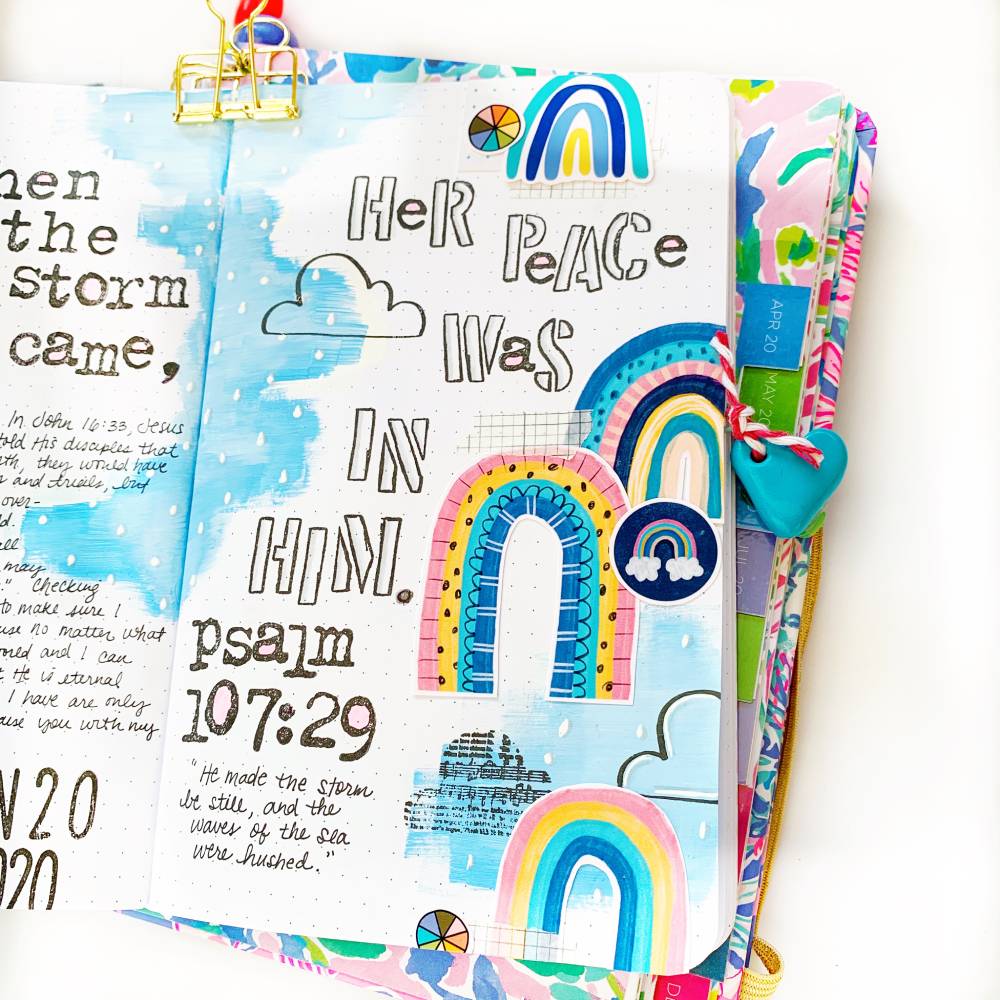 hen
the
storm
came,
In John 16:33, Jesus
told His disciples that
they would have
and trials, but
over-
all
may
" checking
to make sure I
no matter what
and I can
He is eternal
I have are only
you with my
N20
020
HeR
PeACe
WaS
IN
HIM.
psalm
107:29
"He made the storm
be still, and the
waves of the sea
were hushed."
APR 20
MAY 20
JUL 20